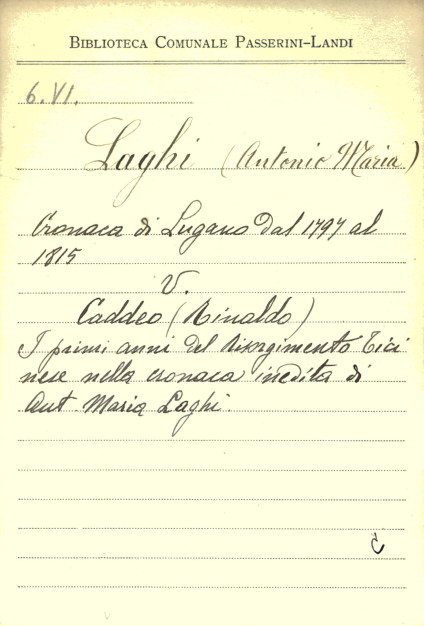 BIBLIOTECA COMUNALE PASSERINI-LANDI
6.VI.
Laghi (Antonio Maria)
Cronaca di Lugano dal 1797 al
1815
V.
Caddeo (Rinaldo)
I primi anni del Risorgimento Tici
nese nella cronaca inedita di
Ant Maria Laghi.